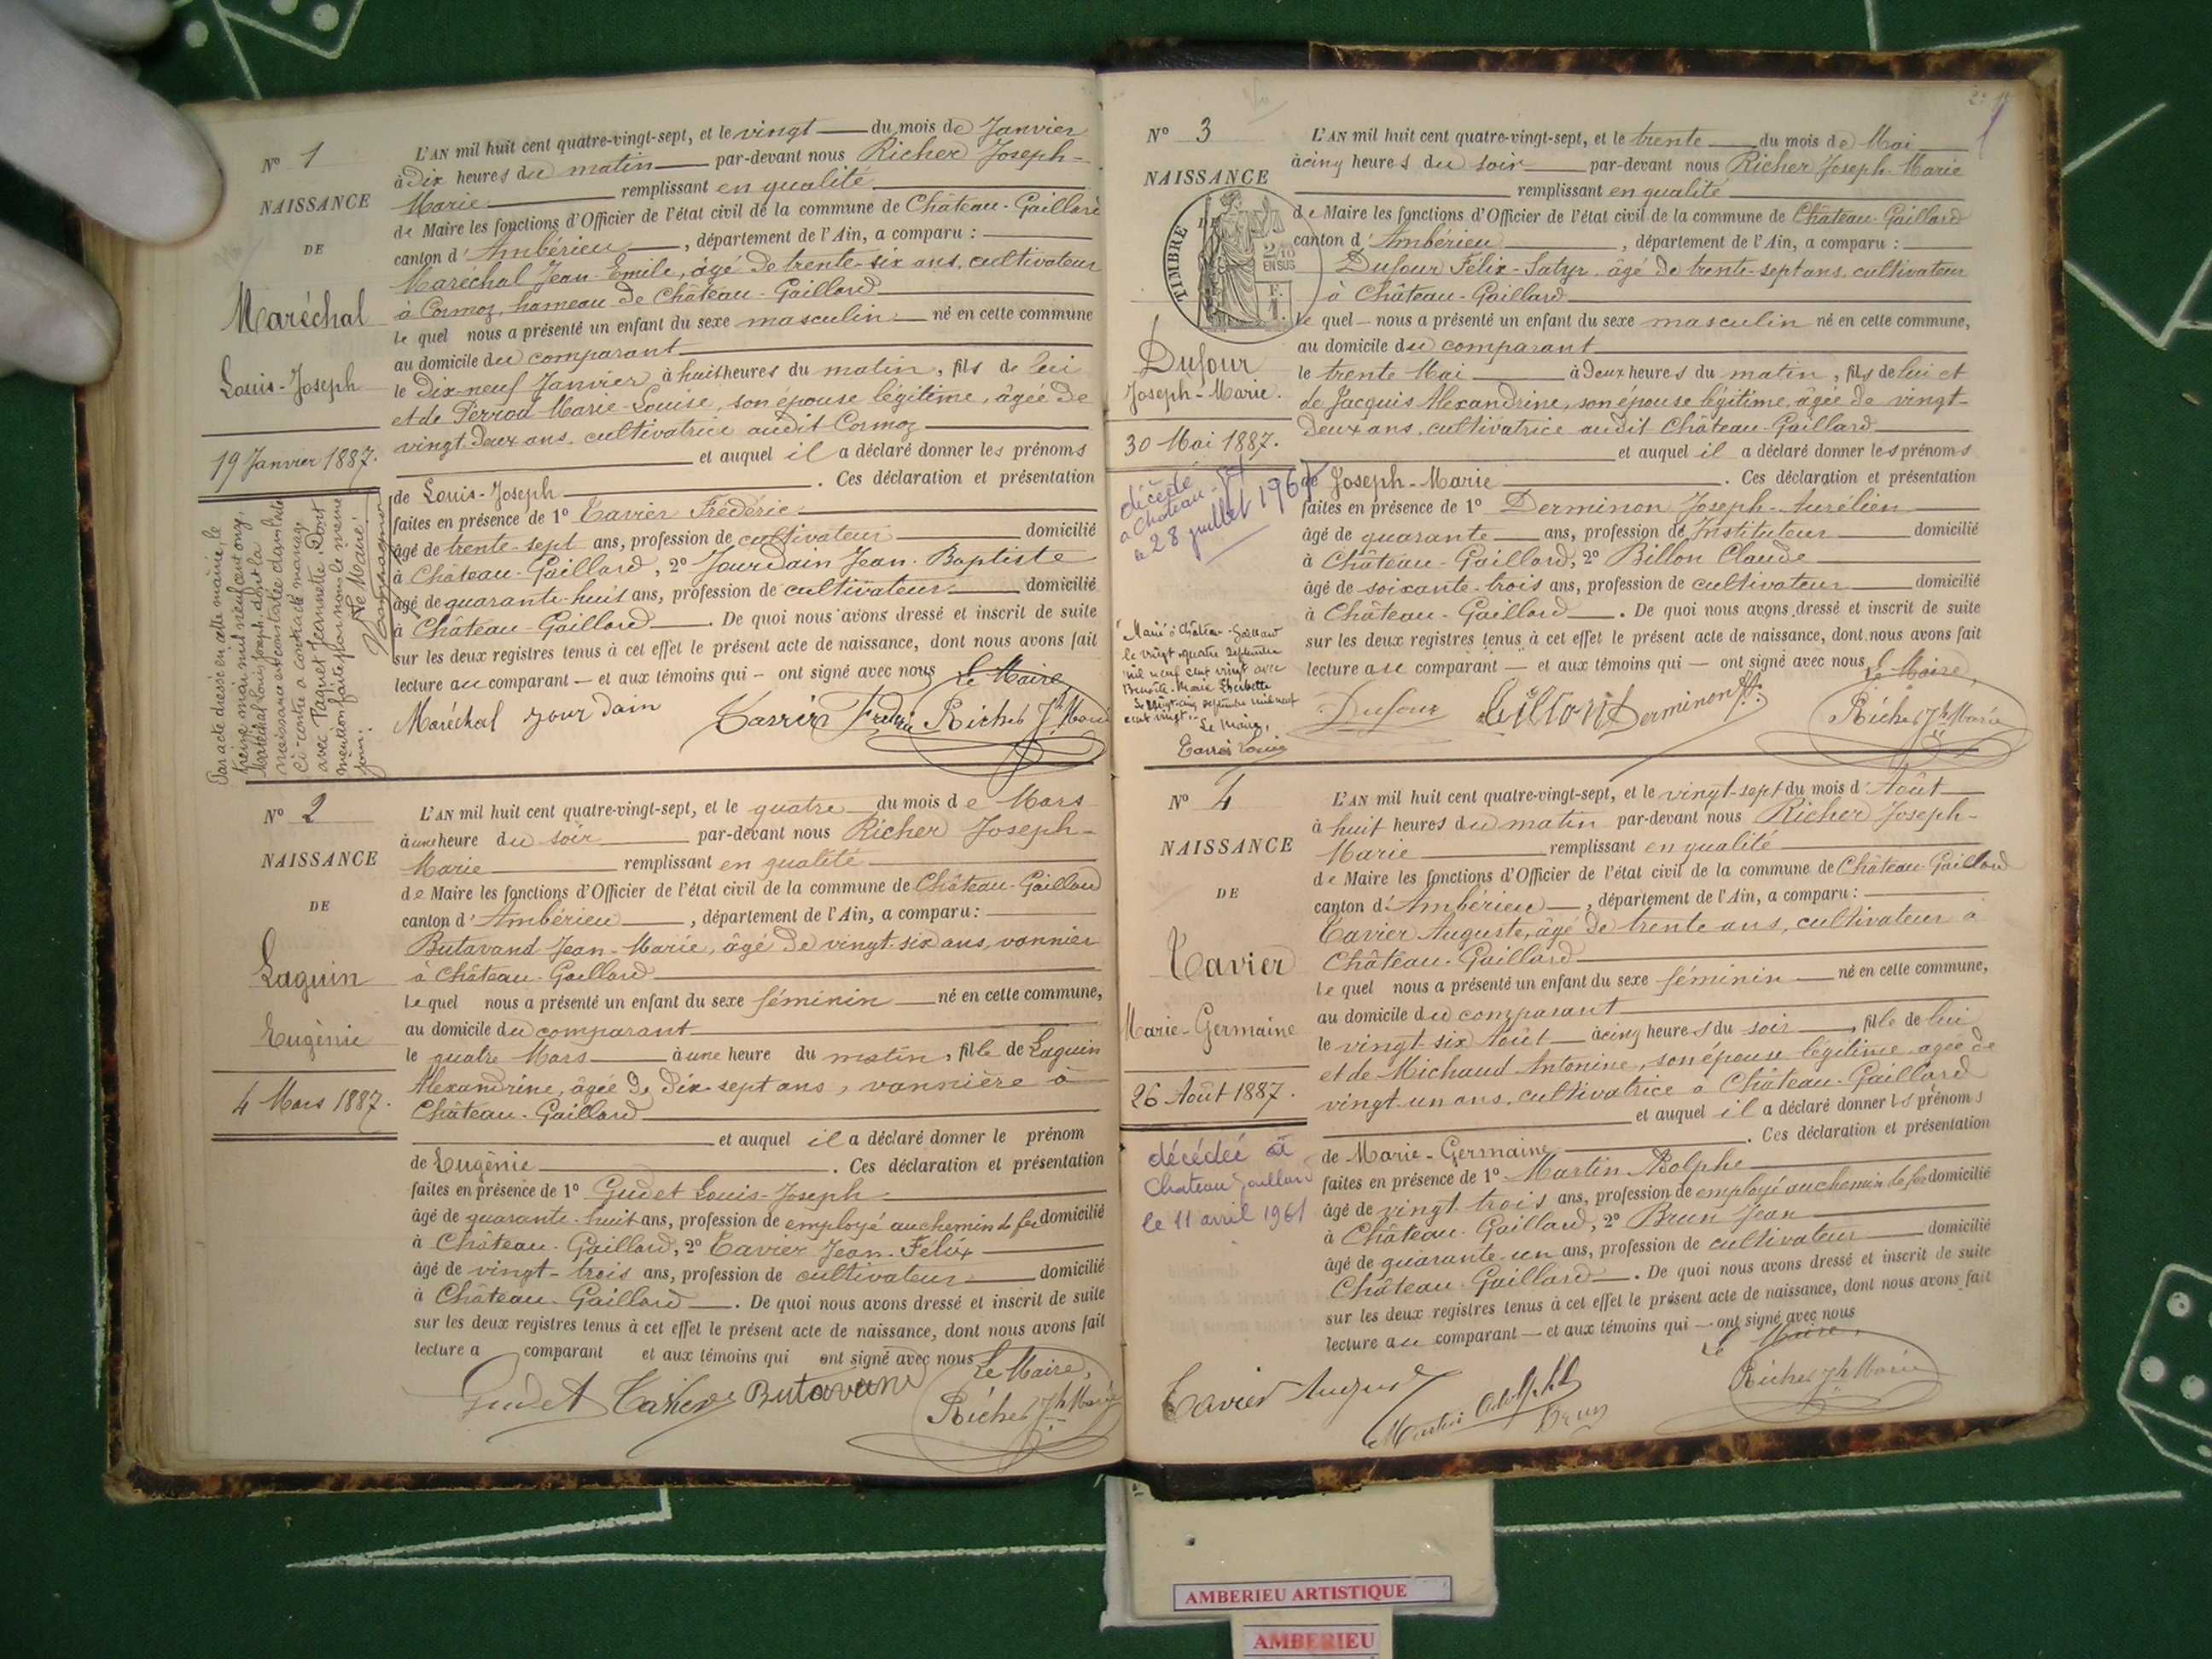 N° 1
NAISSANCE
DE
Maréchal
Louis-Joseph
19 Janvier 1887.
Par acte dressé en cette mairie, le
treize mai mil neuf cent onze,
Maréchal Louis Joseph dont la
naissance est constatée dans l'acte
ci-contre a contracté mariage
avec Paquet Jeannette. Dont
mention faite par nous le même
jour.
Le Maire:
L'AN mil huit cent quatre-vingt-sept, et le vingt du mois de Janvier
à Dix heures du matin par-devant nous Richer Joseph-
Marie remplissant en qualité
de Maire les fonctions d'Officier de l'état civil de la commune de Château-Gaillard
canton d'Ambérieu, département de l'Ain, a comparu :
Maréchal Jean-Emile, âgé de trente-six ans, cultivateur
à Cormoz, hameau de Château-Gaillard
le quel nous a présenté un enfant du sexe masculin né en cette commune
au domicile du comparant
le Dix-neuf Janvier à huit heures du matin, fils de lui
et de Perrod Marie-Louise, son épouse légitime, âgée de
vingt-deux ans, cultivatrice audit Cormoz
et auquel il a déclaré donner les prénoms
de Louis-Joseph. Ces déclaration et présentation
faites en présence de 1° Tavier Frédéric
âgé de trente-sept ans, profession de cultivateur domicilié
à Château-Gaillard, 2° Jourdain Jean-Baptiste
âgé de quarante-huit ans, profession de cultivateur domicilié
à Château-Gaillard. De quoi nous avons dressé et inscrit de suite
sur les deux registres tenus à cet effet le présent acte de naissance, dont nous avons fait
lecture au comparant — et aux témoins qui — ont signé avec nous
Le Maire
Maréchal jourdain Tavier Frédéric Richer Jh Marie
N° 2
NAISSANCE
DE
Laguin
Eugénie
4 Mars 1887.
L'AN mil huit cent quatre-vingt-sept, et le quatre du mois de Mars
à une heure du soir par-devant nous Richer Joseph-
Marie remplissant en qualité
de Maire les fonctions d'Officier de l'état civil de la commune de Château-Gaillard
canton d'Ambérieu, département de l'Ain, a comparu :
Butavand Jean-Marie, âgé de vingt-six ans, vannier
à Château-Gaillard
le quel nous a présenté un enfant du sexe féminin né en cette commune,
au domicile du comparant
le quatre Mars à une heure du matin, fille de Laguin
Alexandrine, âgée de Dix-sept ans, vannière à
Château-Gaillard
et auquel il a déclaré donner le prénom
de Eugénie. Ces déclaration et présentation
faites en présence de 1° Gudet Louis-Joseph
âgé de quarante-huit ans, profession de employé au chemin de fer domicilié
à Château-Gaillard, 2° Tavier Jean-Félix
âgé de vingt-trois ans, profession de cultivateur domicilié
à Château-Gaillard. De quoi nous avons dressé et inscrit de suite
sur les deux registres tenus à cet effet le présent acte de naissance, dont nous avons fait
lecture a comparant et aux témoins qui ont signé avec nous
Le Maire,
Gudet Tavier Butavand Richer Jh Marie
N° 3
NAISSANCE
TIMBRE
2/10
EN SUS
Dufour
Joseph-Marie.
30 Mai 1887.
décédé
à Château-Gd
le 28 juillet 1967
Marié à Château-Gaillard
le vingt-quatre septembre
mil neuf cent vingt avec
Benoîte-Marie
Le vingt-cinq septembre mil neuf
cent vingt.
Le Maire,
L'AN mil huit cent quatre-vingt-sept, et le trente du mois de Mai
à cinq heures du soir par-devant nous Richer Joseph-Marie
remplissant en qualité
de Maire les fonctions d'Officier de l'état civil de la commune de Château-Gaillard
canton d'Ambérieu, département de l'Ain, a comparu :
Dufour Félix-Satyr âgé de trente-sept ans, cultivateur
à Château-Gaillard
le quel — nous a présenté un enfant du sexe masculin né en cette commune,
au domicile du comparant
le trente Mai à deux heures du matin, fils de lui et
de Jacquis Alexandrine, son épouse légitime, âgée de vingt-
deux ans, cultivatrice audit Château-Gaillard
et auquel il a déclaré donner les prénoms
de Joseph-Marie. Ces déclaration et présentation
faites en présence de 1° Derminon Joseph-Aurélien
âgé de quarante ans, profession de Instituteur domicilié
à Château-Gaillard, 2° Billon Claude
âgé de soixante-trois ans, profession de cultivateur domicilié
à Château-Gaillard. De quoi nous avons dressé et inscrit de suite
sur les deux registres tenus à cet effet le présent acte de naissance, dont nous avons fait
lecture au comparant — et aux témoins qui — ont signé avec nous
Le Maire,
Dufour Billon Derminon Richer Jh Marie
N° 4
NAISSANCE
DE
Tavier
Marie-Germaine
26 Août 1887.
décédée à
Chateau Gaillard
le 11 avril 1961
L'AN mil huit cent quatre-vingt-sept, et le vingt-sept du mois d'Août
à huit heures du matin par-devant nous Richer Joseph-
Marie remplissant en qualité
de Maire les fonctions d'Officier de l'état civil de la commune de Château-Gaillard
canton d'Ambérieu, département de l'Ain, a comparu :
Tavier Auguste, âgé de trente ans, cultivateur à
Château-Gaillard
le quel nous a présenté un enfant du sexe féminin né en cette commune,
au domicile du comparant
le vingt-six Août à cinq heures du soir, fille de lui
et de Michaud Antonine, son épouse légitime âgée de
vingt-un ans, cultivatrice à Château-Gaillard
et auquel il a déclaré donner les prénoms
de Marie-Germaine. Ces déclaration et présentation
faites en présence de 1° Martin Adolphe
âgé de vingt-trois ans, profession de employé au chemin de fer domicilié
à Château-Gaillard, 2° Brun Jean
âgé de quarante-un ans, profession de cultivateur domicilié
Château-Gaillard. De quoi nous avons dressé et inscrit de suite
sur les deux registres tenus à cet effet le présent acte de naissance, dont nous avons fait
lecture au comparant — et aux témoins qui — ont signé avec nous
Le Maire,
Tavier Auguste Martin Adolphe Brun Richer Jh Marie
AMBERIEU ARTISTIQUE
AMBERIEU